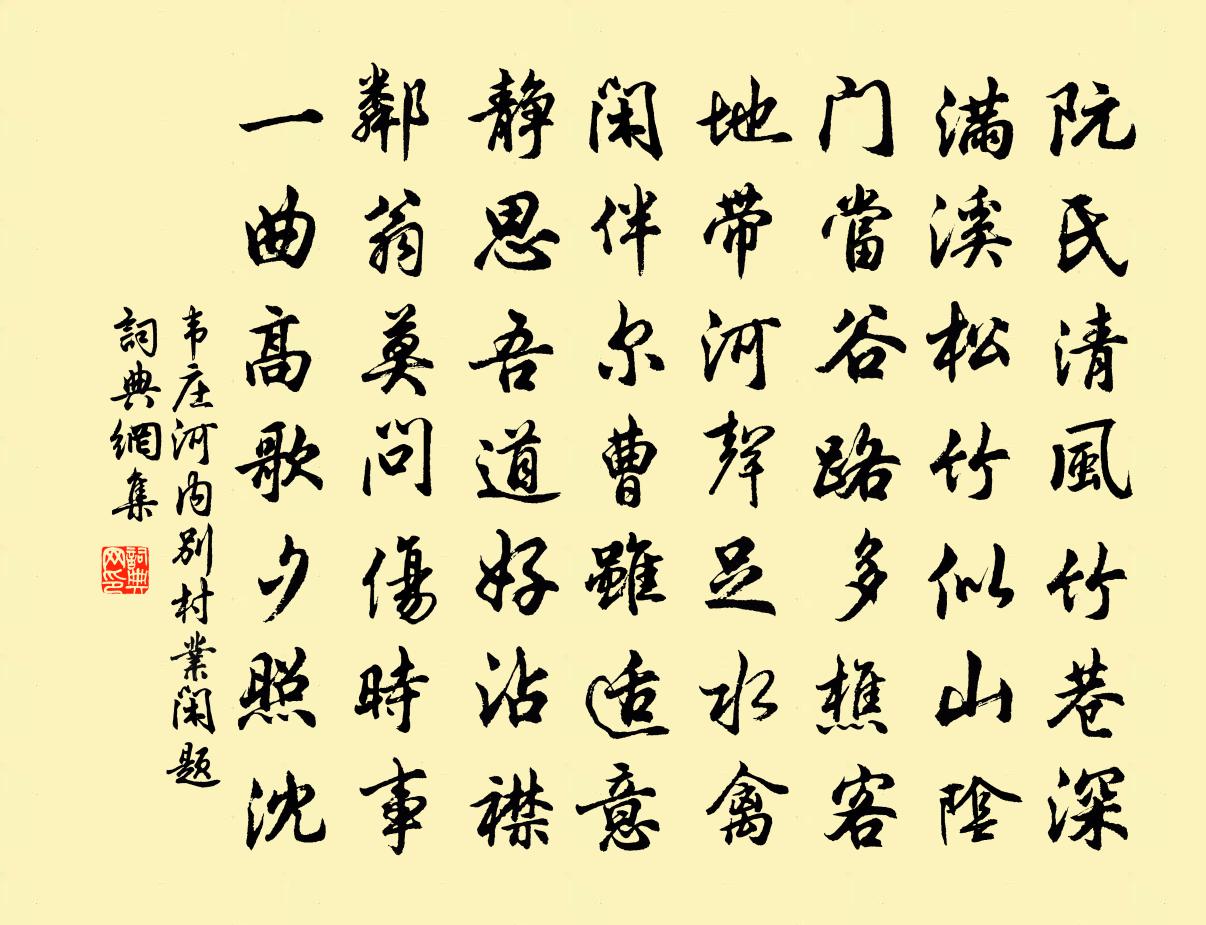 阮氏清風竹巷深
满溪松竹似山陰
门當谷路多樵客
地带河聲足水禽
闲伴尔曹雖适意
静思吾道好沾襟
鄰翁莫问傷時事
一曲高歌夕照沈
韦庄河内别村業闲题
詞典網集
詞典网印